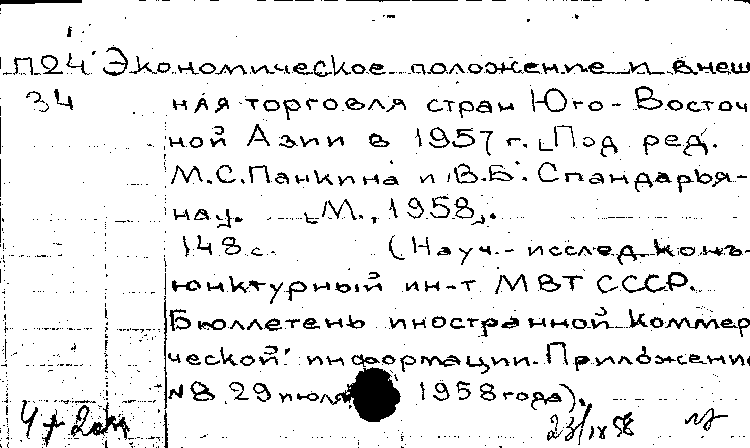 П24 Экономическое положение и внеш
34 няя торговля стран Юго-Восточ
ной Азии в 1957 г. [Под ред.
М.С.Панкина и В.Б. Спандарья-
на]. [М., 1958].
148 с. (Науч.-исслед. конъ-
юнктурный ин-т МВТ СССР.
Бюллетень иностранной коммер
ческой информации. Приложение
№8, 29 июля 1958 года).